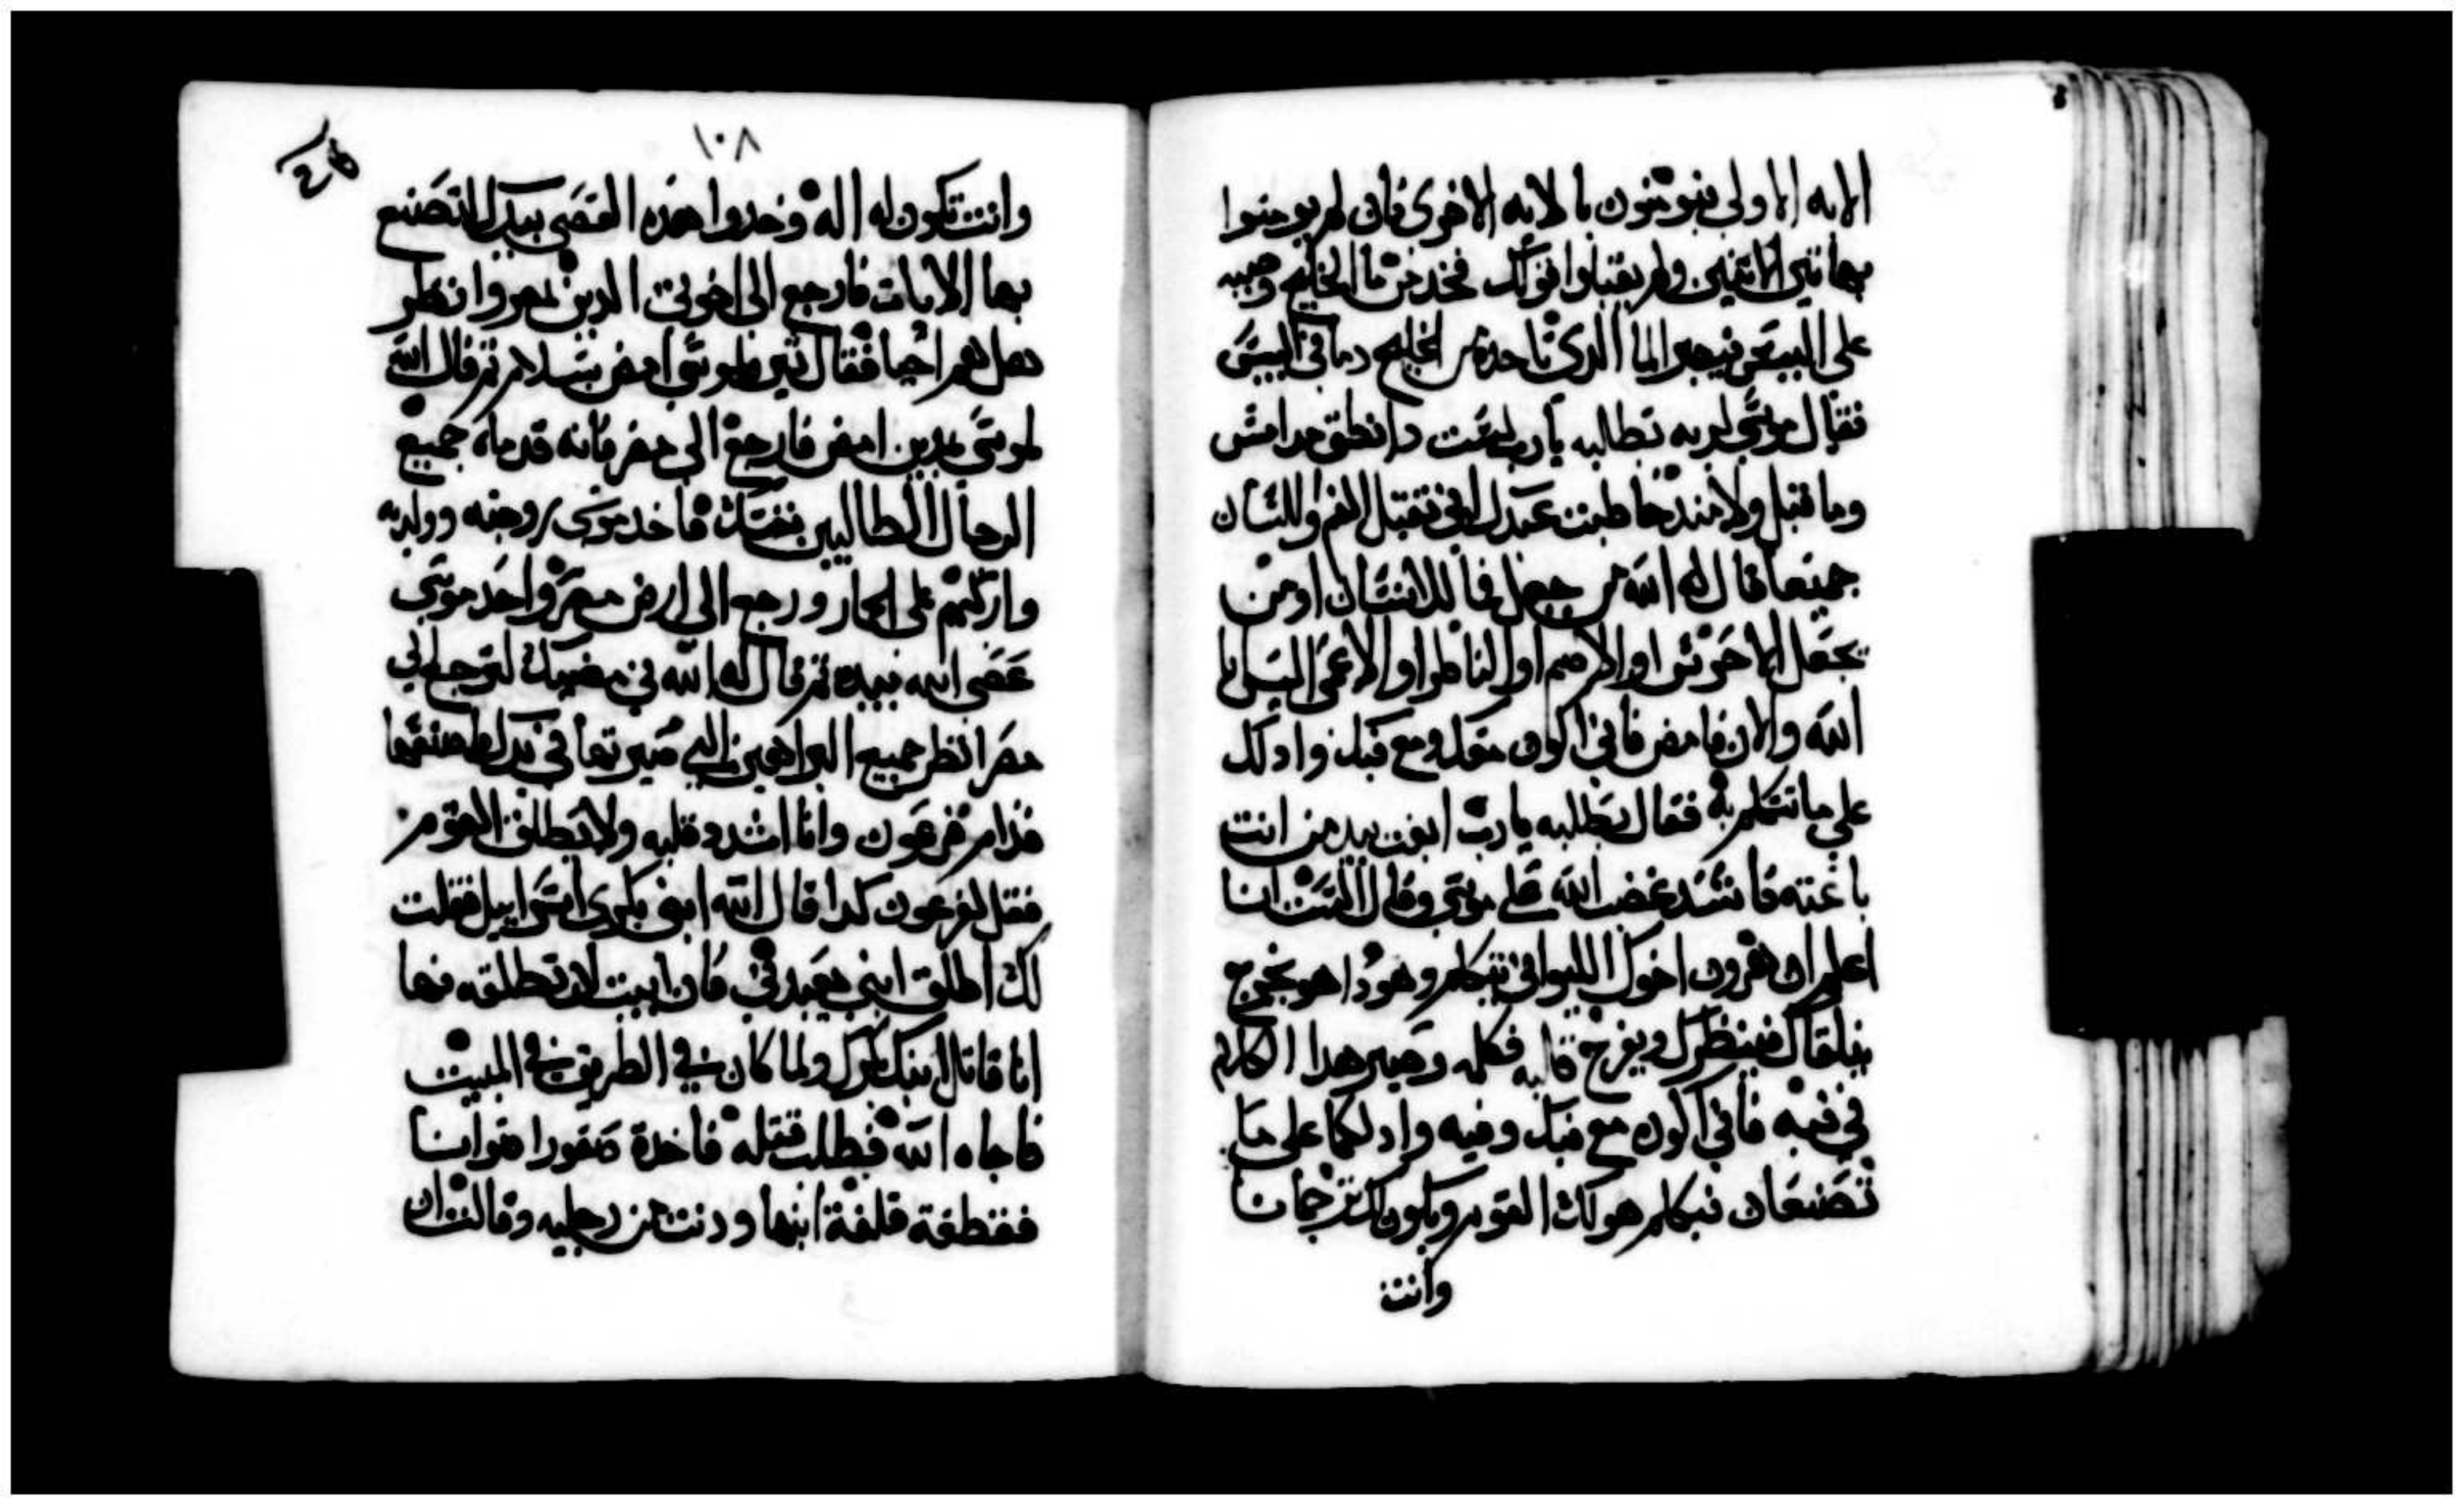 الايه الاولى فيومنون بالايه الاخرى فان لم يومنوا
بهاتين الاتنين ولم يقبلوا قولك فخد من ما الخليج وصبه
على اليبس فيصير الما الدى تاخده من الخليج دما فى اليبس
فقال موسى لربه بطالبه يارب لست دا نطق من امس
وما قبل ولا مند خاطبت عبدك انى تقيل الفم واللسان
جميعا قال له الله من جعل فا للانسان او من
يجعل الاخرس او الاصم او الناظر او الاعمى اليس انا
الله والان فامض فانى اكون معك ومع فيك وادلك
على ما تتكلم به فقال بطلبه يارب ابعت بيد من انت
باعته فاشتد غضب الله على موسى وقال اليس انا
اعلم ان هرون اخوك الليوانى يتكلم وهودا هو يخرج
يتلقاك فينظرك ويفرح قلبه فكلمه وصير هدا الكلام
فى فيه فانى اكون مع فيك وفيه وادلكما على ما
تصنعان فيكلم هو لك القوم ويكون لك ترجمانا
وانت
١٠٨
وانت تكون له اله وخدوا هده العصى بيدك لتصنع
بها الايات فارجع الى اخوتى الدين بمصر وانظر
هل هم احيا فقال تيرن لموسى امض بسلام تم قال الله
لموسى بمدين امض فارجع الى مصر فانه قد مات جميع
الرجال الطالبين نفسك فاخد موسى زوجته وولديه
واركبهم على الحمار ورجع الى ارض مصر واخد موسى
عصى الله بيده تم قال له الله فى مضيك لترجع الى
مصر انظر جميع البراهين التى صيرتها فى يدك فاصنعها
قدام فرعون وانا اشدد قلبه ولا يطلق القوم
فقل لفرعون كدا قال الله ابنى بكرى اسراييل فقلت
لك اطلق ابنى يعبدنى فان ابيت لا تطلقه فها
انا قاتل ابنك بكرك ولما كان فى الطريق فى المبيت
فاجاه الله فطلب قتله فاخدة صفورا صوانا
فقطعة قلفة ابنها ودنت من رجليه وقالت ان